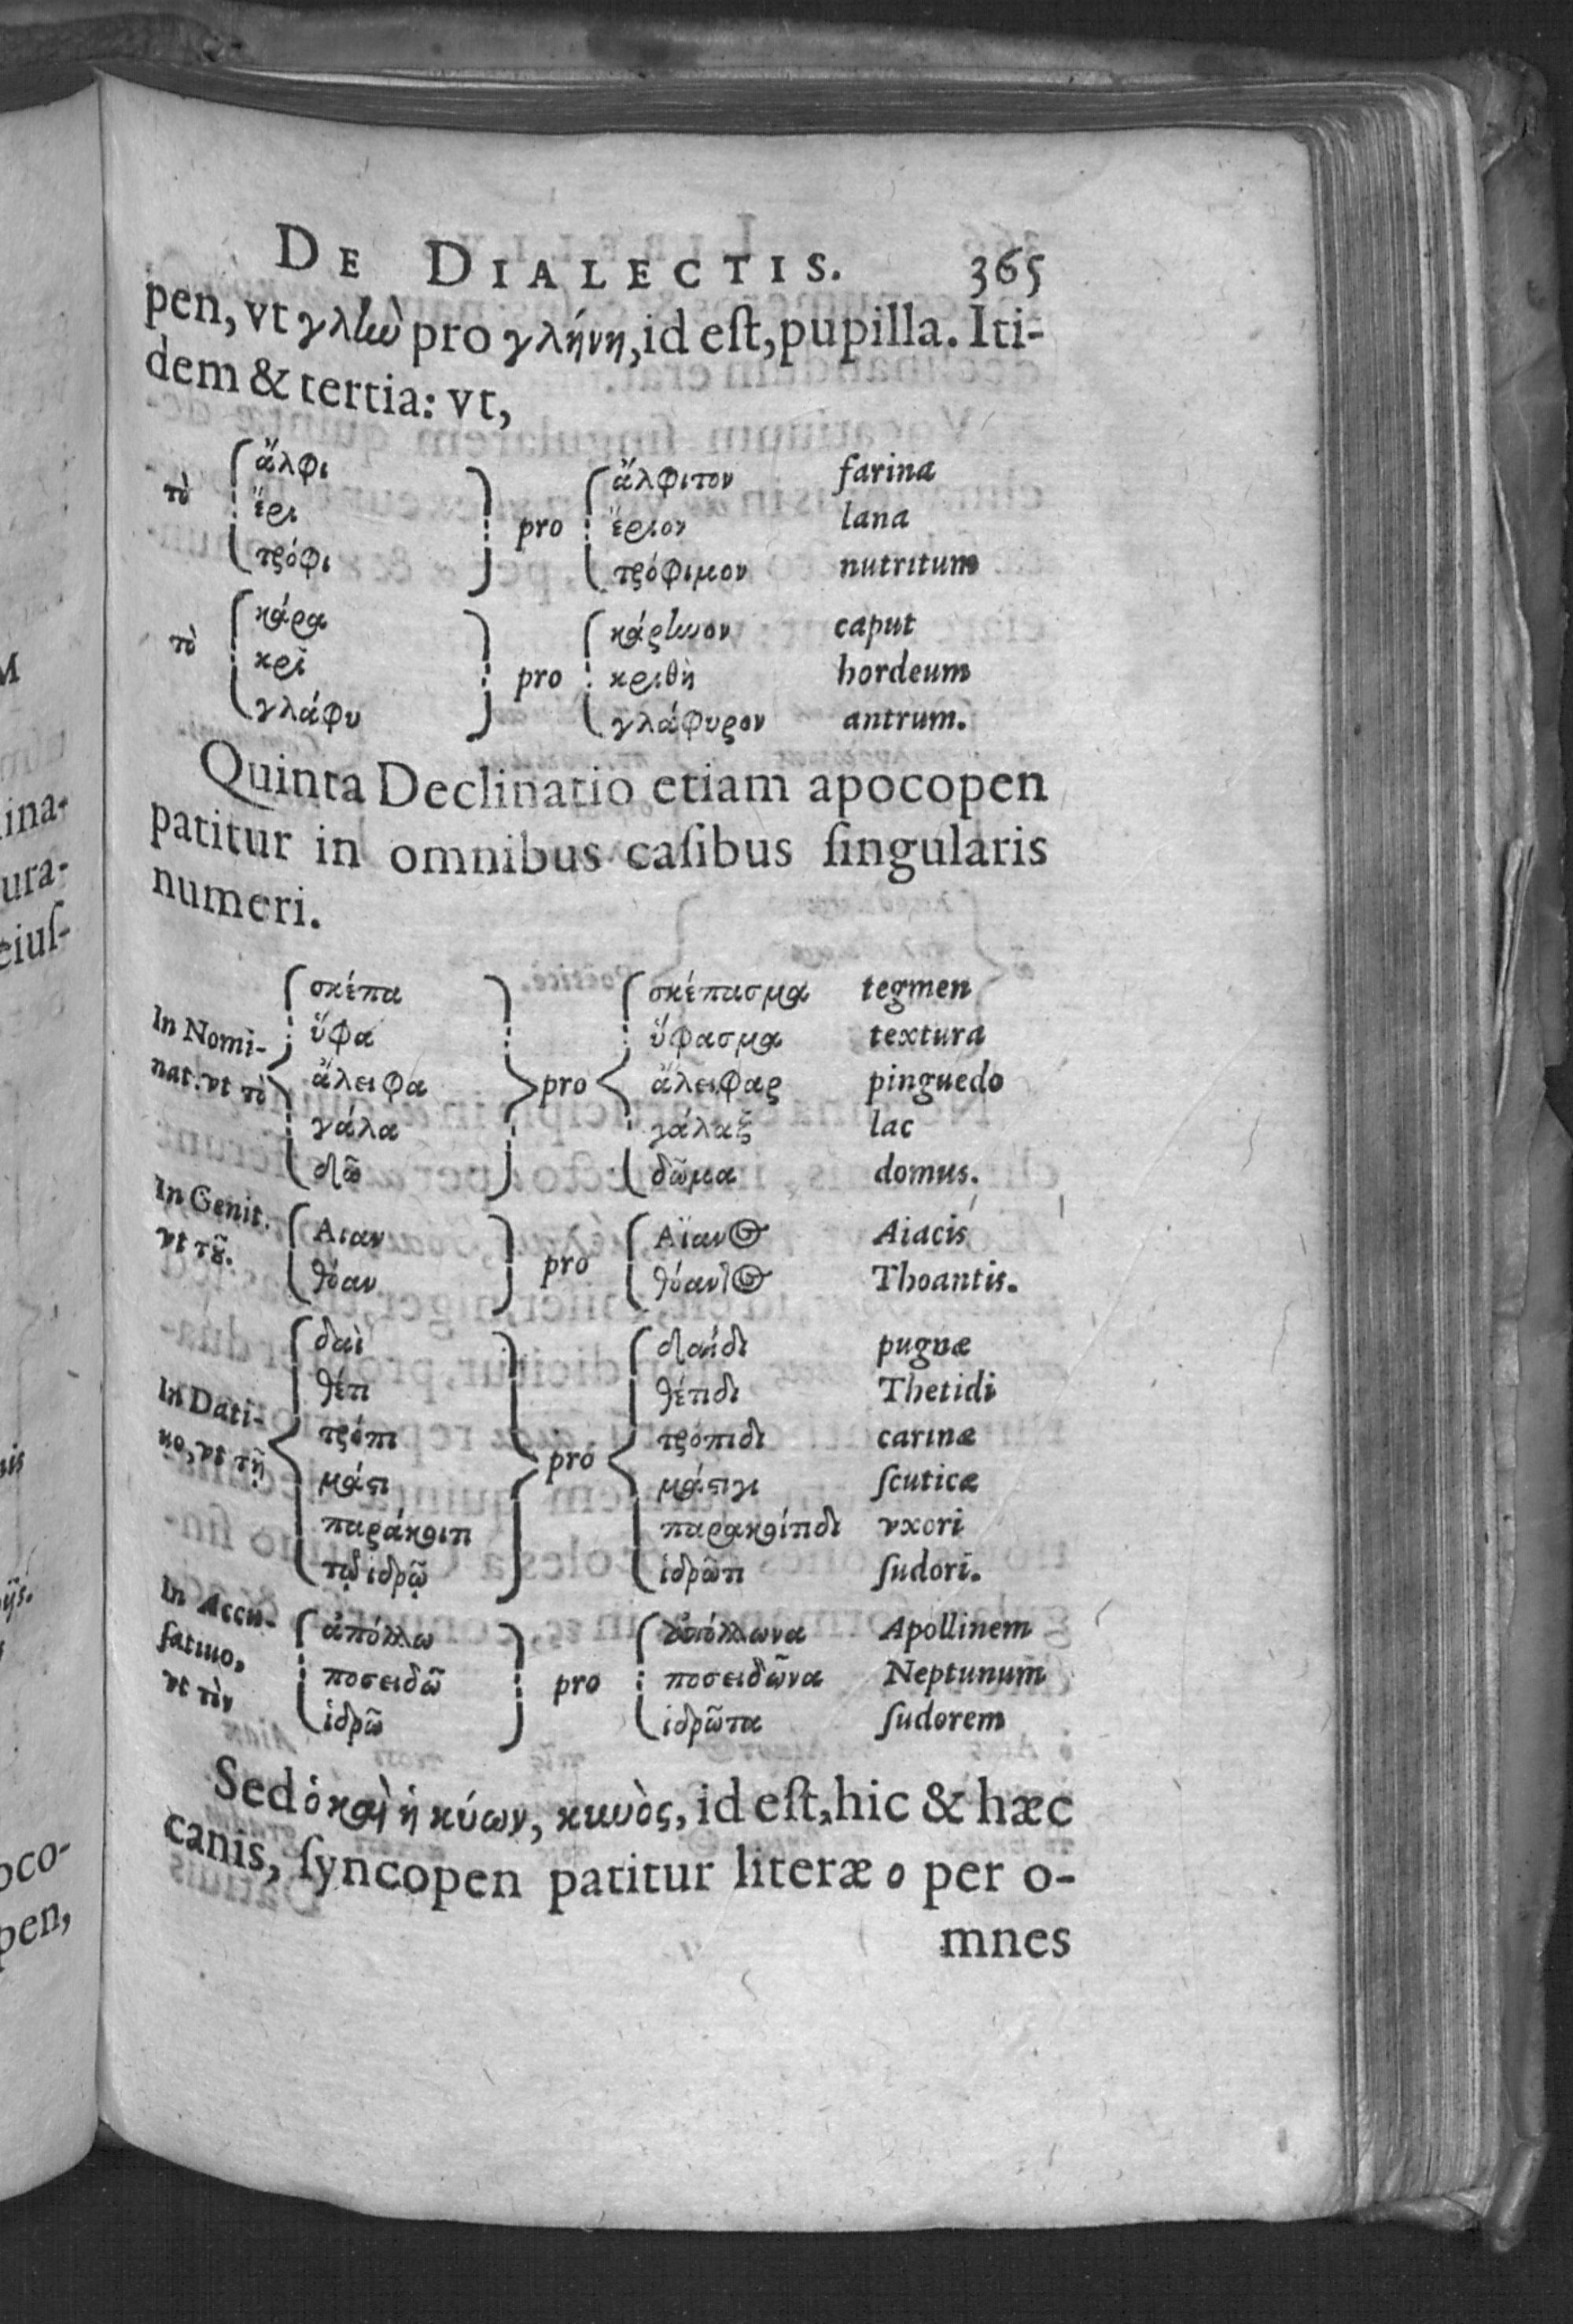 DE DIALECTIS. 365
pen, vt γλὼ pro γλήνη, id eſt, pupilla. Iti-
dem & tertia: vt,
τὸ ἄλφι pro ἄλφιτον farina
ἔρι ἔριον lana
τρόφι τρόφιμον nutritum
τὸ κάρα pro κάρηνον caput
κρῖ κριθὴ hordeum
γλάφυ γλάφυρον antrum.
Quinta Declinatio etiam apocopen
patitur in omnibus caſibus ſingularis
numeri.
In Nomi-
nat. vt τὸ
σκέπα pro σκέπασμα tegmen
ὕφα ὕφασμα textura
ἄλειφα ἄλειφαρ pinguedo
γάλα γάλαξ lac
δῶ δῶμα domus.
In Genit.
vt τοῦ.
Αιαν pro Αἴανος Aiacis
θόαν θόαντος Thoantis.
In Dati-
uo, vt τῇ
δαὶ pro δαΐδι pugnæ
θέτι θέτιδι Thetidi
τρόπι τρόπιδι carinæ
μάστι μάστιγι ſcuticæ
παράκοιτι παρακοίτιδι vxori
τῷ ἱδρῷ ἱδρῶτι ſudori.
In Accu-
ſatiuo,
vt τὸν
ἀπόλλω pro ἀπόλλωνα Apollinem
ποσειδῶ ποσειδῶνα Neptunum
ἱδρῶ ἱδρῶτα ſudorem
Sed ὁ καὶ ἡ κύων, κυνὸς, id eſt, hic & hæc
canis, ſyncopen patitur literæ o per o-
mnes